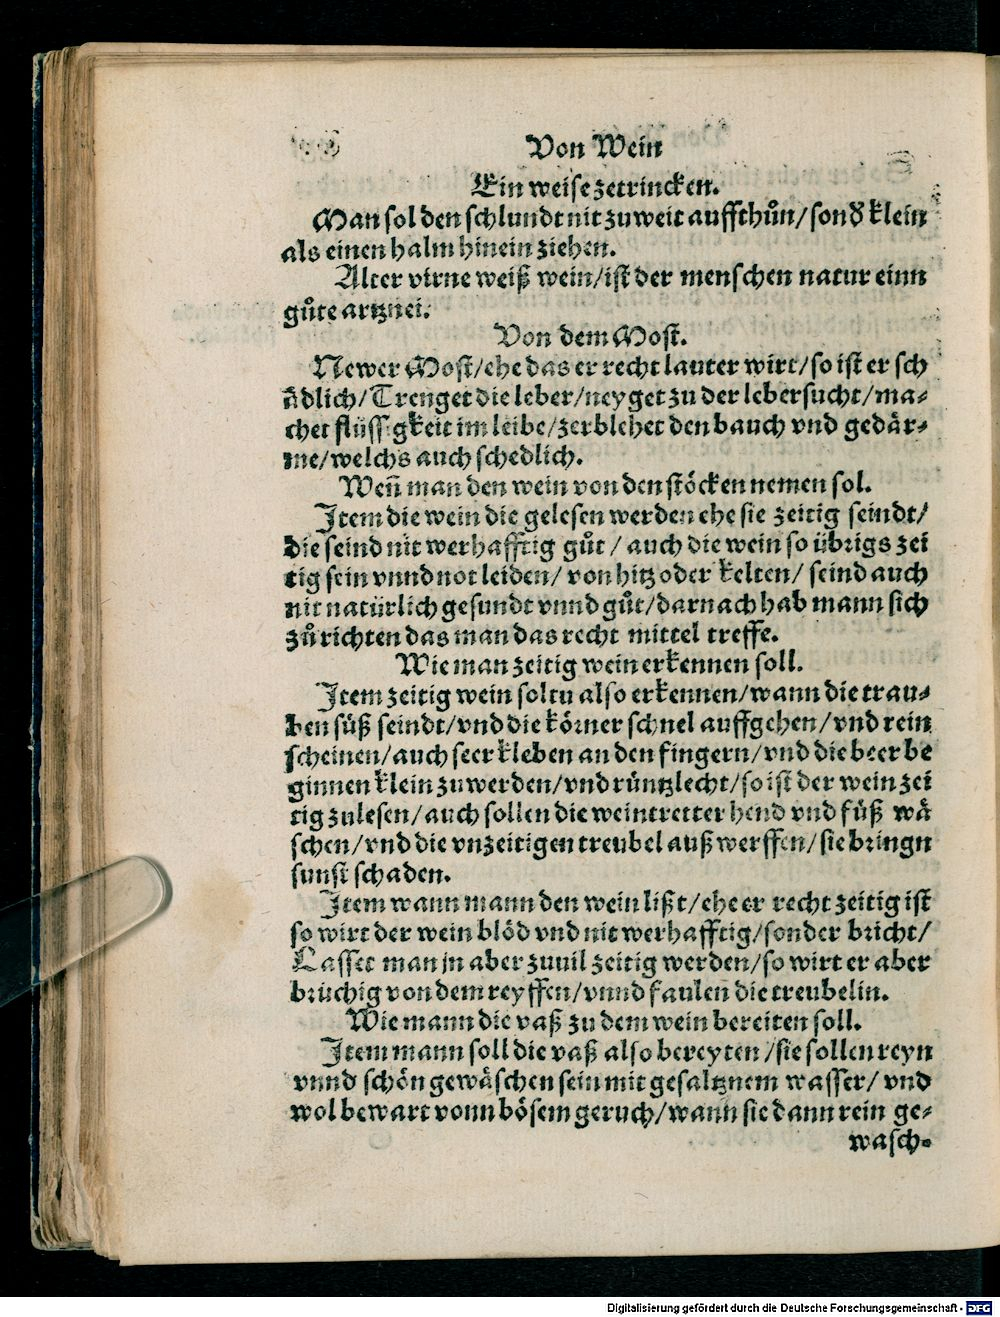 Von Wein
Ein weise zetrincken.
Man sol den schlundt nit zu weit auffthůn/ sond̕ klein
als einen halm hinein ziehen.
Alter virne weiß wein/ ist der menschen natur einn
gůte artznei.
Von dem Most.
Newer Most/ ehe das er recht lauter wirt/ so ist er sch
ädlich/ Trenget die leber/ neyget zu der lebersucht/ ma⸗
chet flüssigkeit im leibe/ zerblehet den bauch vnd gedär⸗
me/ welchs auch schedlich.
Weñ man den wein von den stöcken nemen sol.
Item die wein die gelesen werden ehe sie zeitig seindt/
die seind nit werhafftig gůt / auch die wein so übrigs zei
tig sein vnnd not leiden/ von hitz oder kelten/ seind auch
nit natürlich gesundt vnnd gůt/ darnach hab mann sich
zů richten das man das recht mittel treffe.
Wie man zeitig wein erkennen soll.
Item zeitig wein soltu also erkennen/ wann die trau⸗
ben süß seindt/ vnd die körner schnel auffgehen/ vnd rein
scheinen/ auch seer kleben an den fingern/ vnd die beer be
ginnen klein zu werden/ vnd rüntzlecht/ so ist der wein zei
tig zulesen/ auch sollen die weintretter hend vnd füß wä
schen/ vnd die vnzeitigen treubel auß werffen/ sie bringn
sunst schaden.
Item wann mann den wein lißt/ ehe er recht zeitig ist
so wirt der wein blöd vnd nit werhafftig/ sonder bricht/
Lasset man jn aber zuuil zeitig werden/ so wirt er aber
brüchig von dem reyffen/ vnnd faulen die treubelin.
Wie mann die vaß zu dem wein bereiten soll.
Item mann soll die vaß also bereyten / sie sollen reyn
vnnd schön gewäschen sein mit gesaltznem wasser/ vnd
wol bewart vonn bösem geruch/ wann sie dann rein ge⸗
wasch⸗
Digitalisierung gefördert durch die Deutsche Forschungsgemeinschaft - DFG